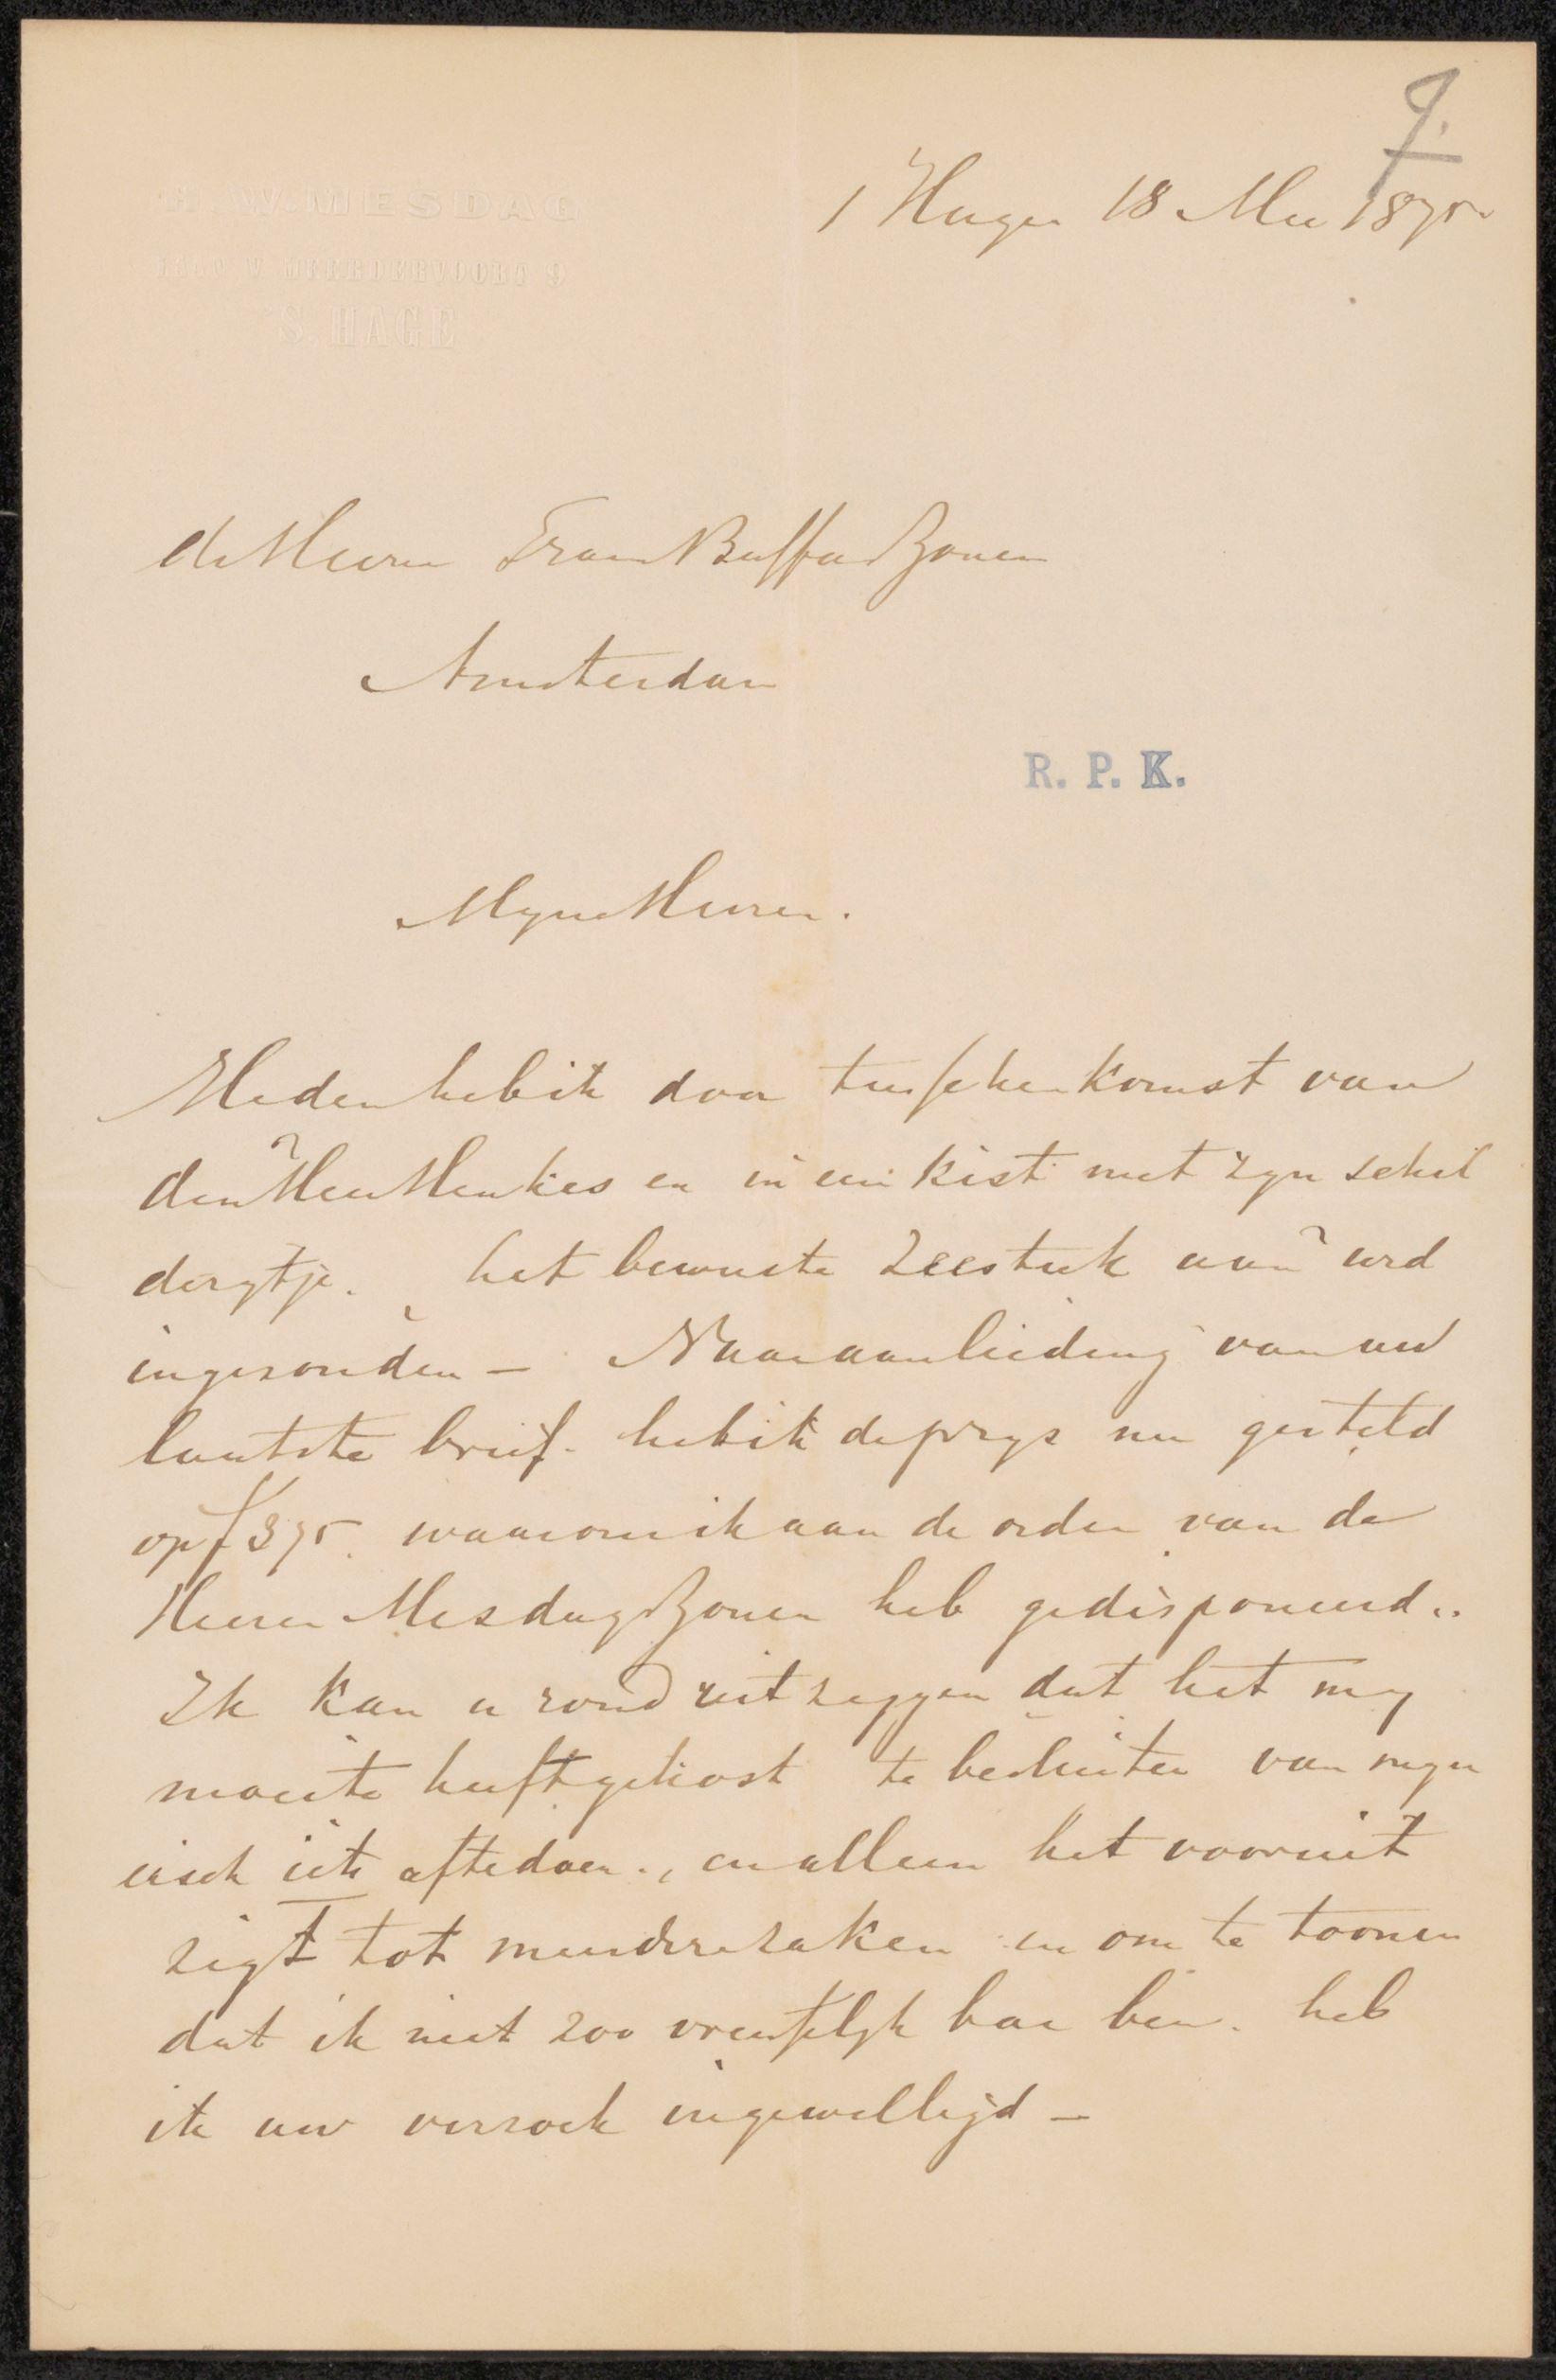 9.
H. W. MESDAG
LAAN V. MEERDERVOORT 9
'S. HAGE
's Hage 18 Mei 1875
de Heeren Frans Buffa & Zonen
Amsterdam
R. P. K.
Myne Heeren.
Heden heb ik door tusschenkomst van
den Heer Henkes en in een kist met zyn schil
derytje. het bewuste Zeestuk aan ued
ingezonden — Naar aanleiding van uw
laatste brief. heb ik de prys nu gesteld
op f 375. waarom ik aan de order van de
Heeren Mesdag & Zonen heb gedisponeerd..
Ik kan u rond uit zeggen dat het my
moeite heeft gekost te besluiten van myn
eisch iets aftedoen., en alleen het vooruit
zigt tot meerdere zaken en om te toonen
dat ik niet zoo vreesselyk ben. heb
ik uw verzoek ingewilligd —